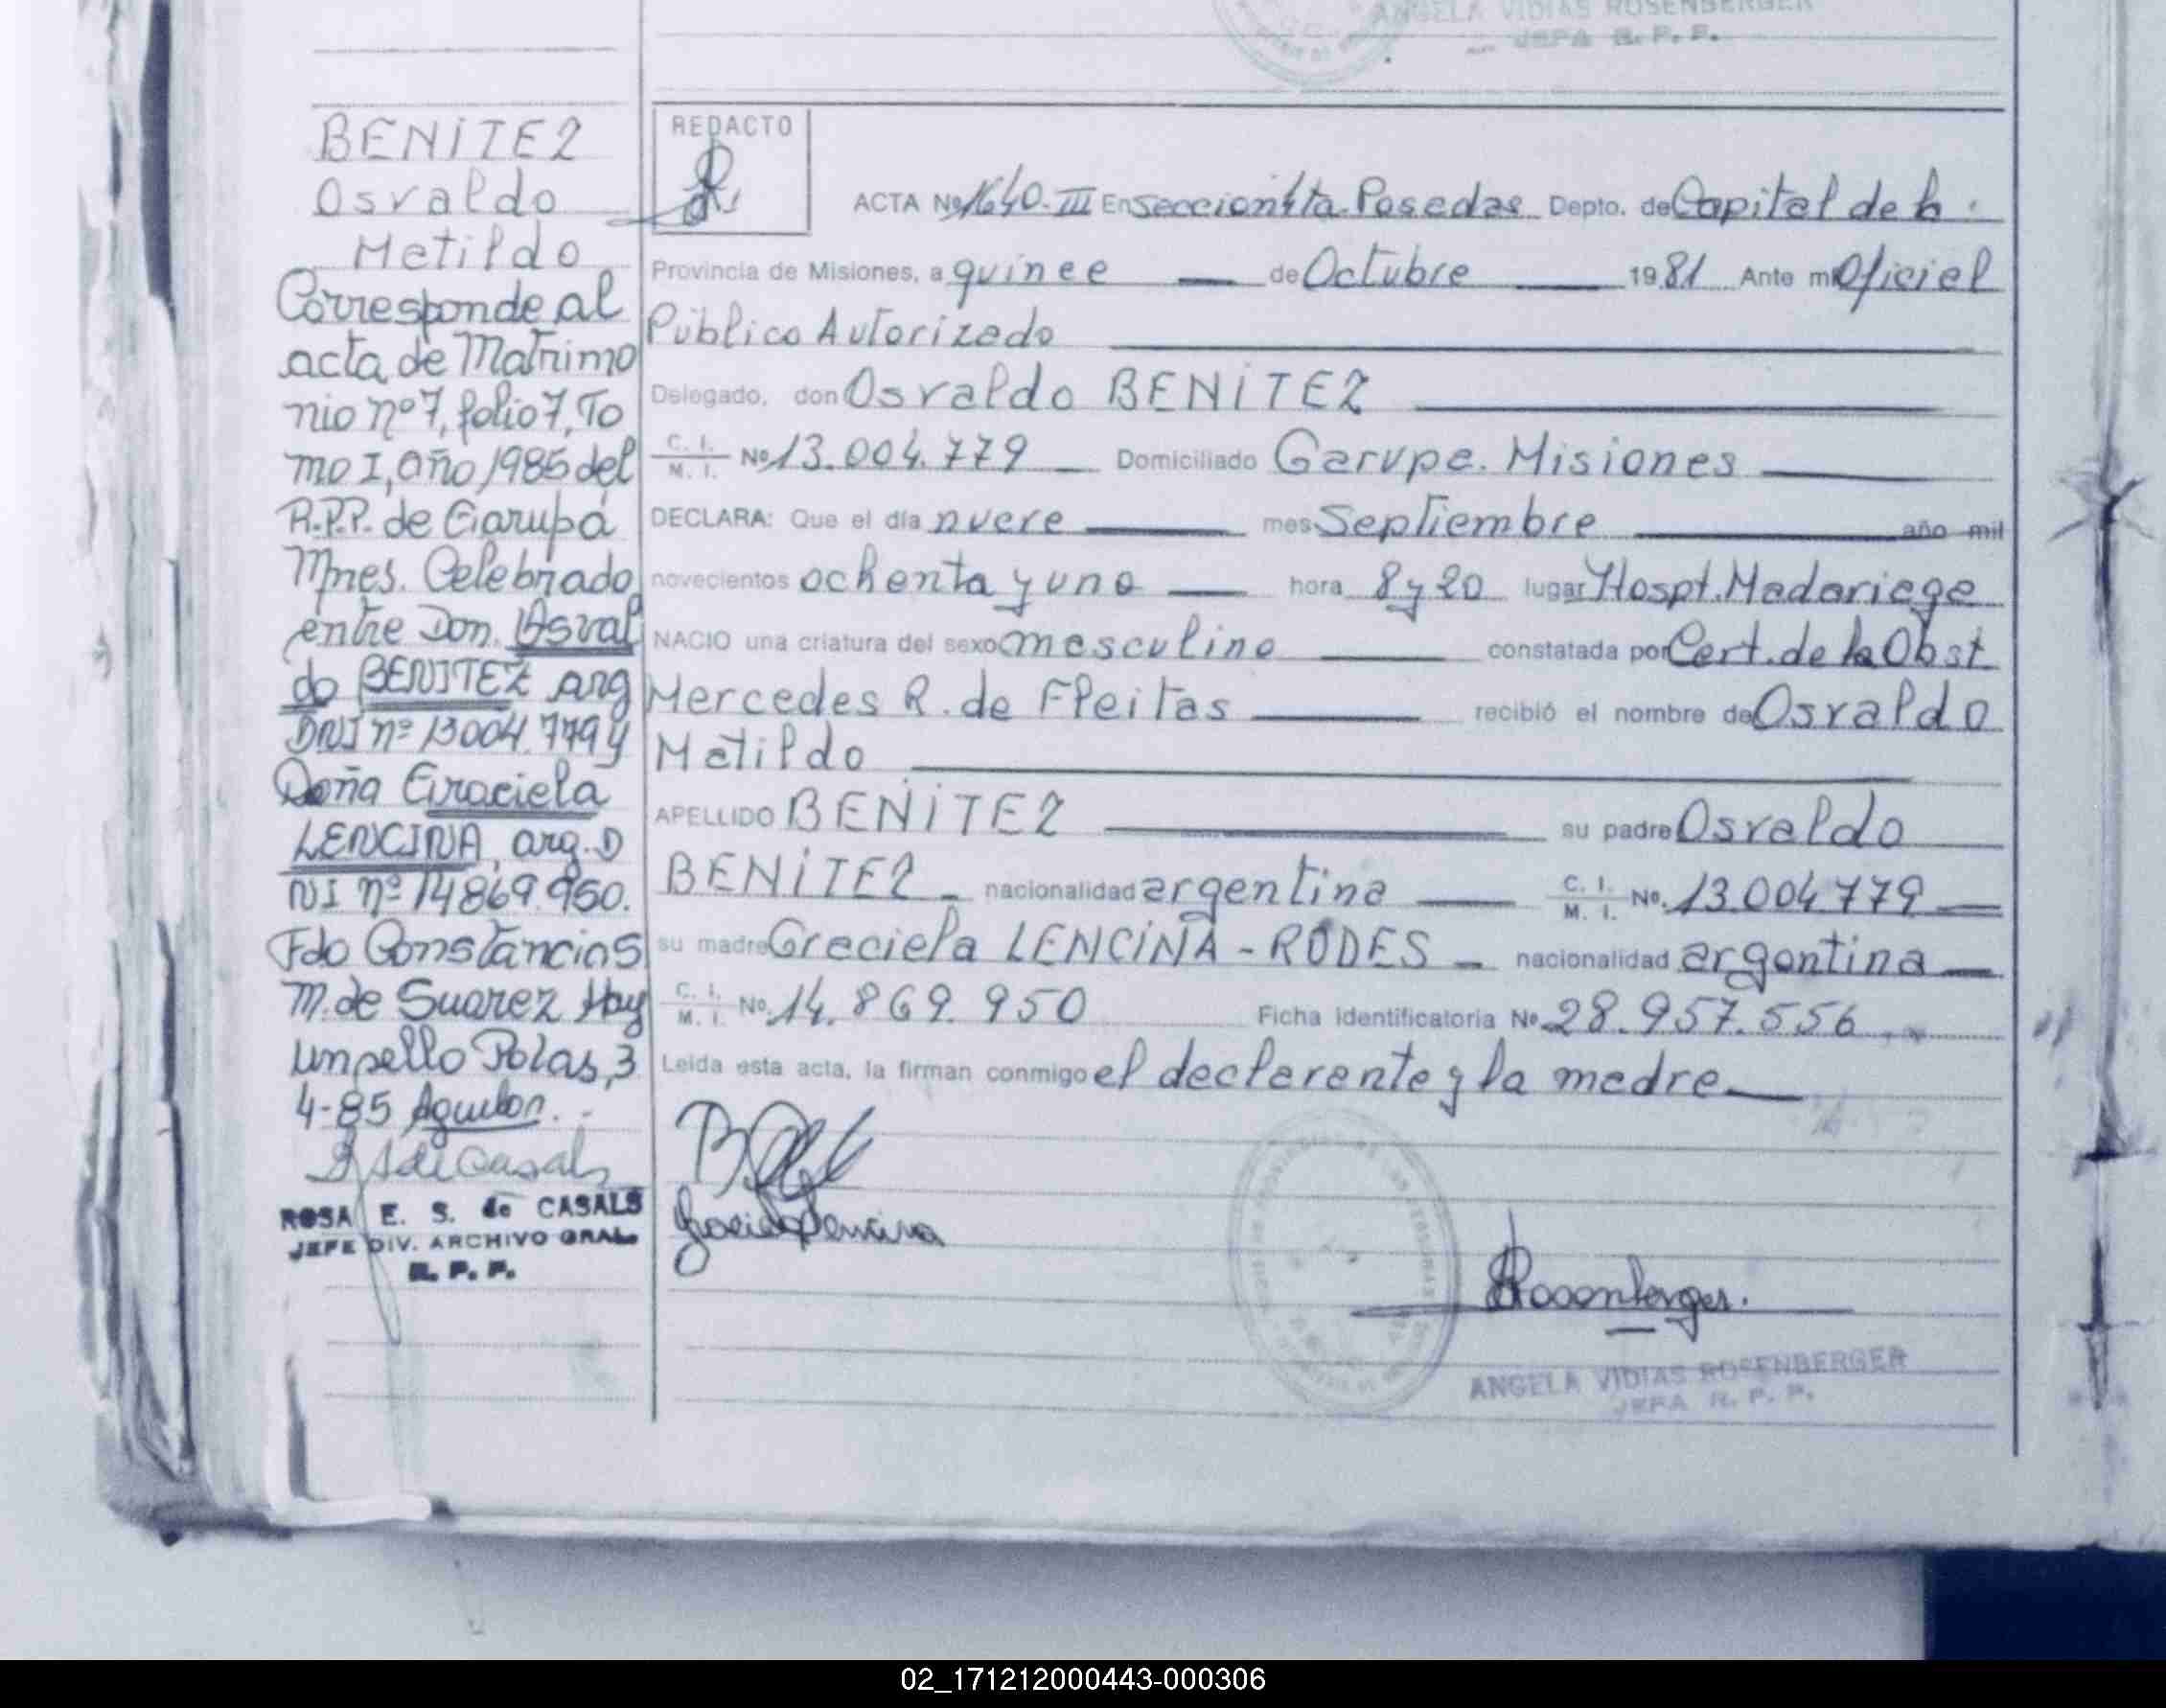 ANGELA VIDIAS ROSENBERGER
JEFA R. P. P.
BENITEZ
Osvaldo
Matildo
Corresponde al
acta de Matrimo
nio nº 7, folio 7, To
mo I, año 1985 del
R.P.P. de Garupá
Mnes. Celebrado
entre Don. Osval
do BENITEZ arg
DNI nº 13004.779 y
Doña Graciela
LENCINA, arg. D
NI nº 14869.950.
Fdo Constancio S
M. de Suarez Hay
un sello Posas, 3
4-85
ROSA E. S. de CASALS
JEFE DIV. ARCHIVO GRAL.
R. P. P.
REDACTO
ACTA Nº 1640. III En Sección 4ta. Posadas Depto. de Capital de la
Provincia de Misiones, a quince de Octubre 1981 Ante mi Oficial
Público Autorizado
Delegado, don Osvaldo BENITEZ
C. I. M. I. Nº 13.004.779 Domiciliado Garupa. Misiones
DECLARA: Que el día nueve mes Septiembre año mil
novecientos ochenta y uno hora 8 y 20 lugar Hospt. Madariaga
NACIO una criatura del sexo masculino constatada por Cert. de la Obst
Mercedes R. de Fleitas recibió el nombre de Osvaldo
Matildo
APELLIDO BENITEZ su padre Osvaldo
BENITEZ nacionalidad argentina C. I. M. I. Nº. 13.004.779
su madre Graciela LENCINA - RODES nacionalidad argentina
C. I. M. I. Nº. 14.869.950 Ficha identificatoria Nº 28.957.556
Leída esta acta, la firman conmigo el declarante y la madre
Graciela Lencina
Rosenberger.
ANGELA VIDIAS ROSENBERGER
JEFA R. P. P.
02_171212000443-000306